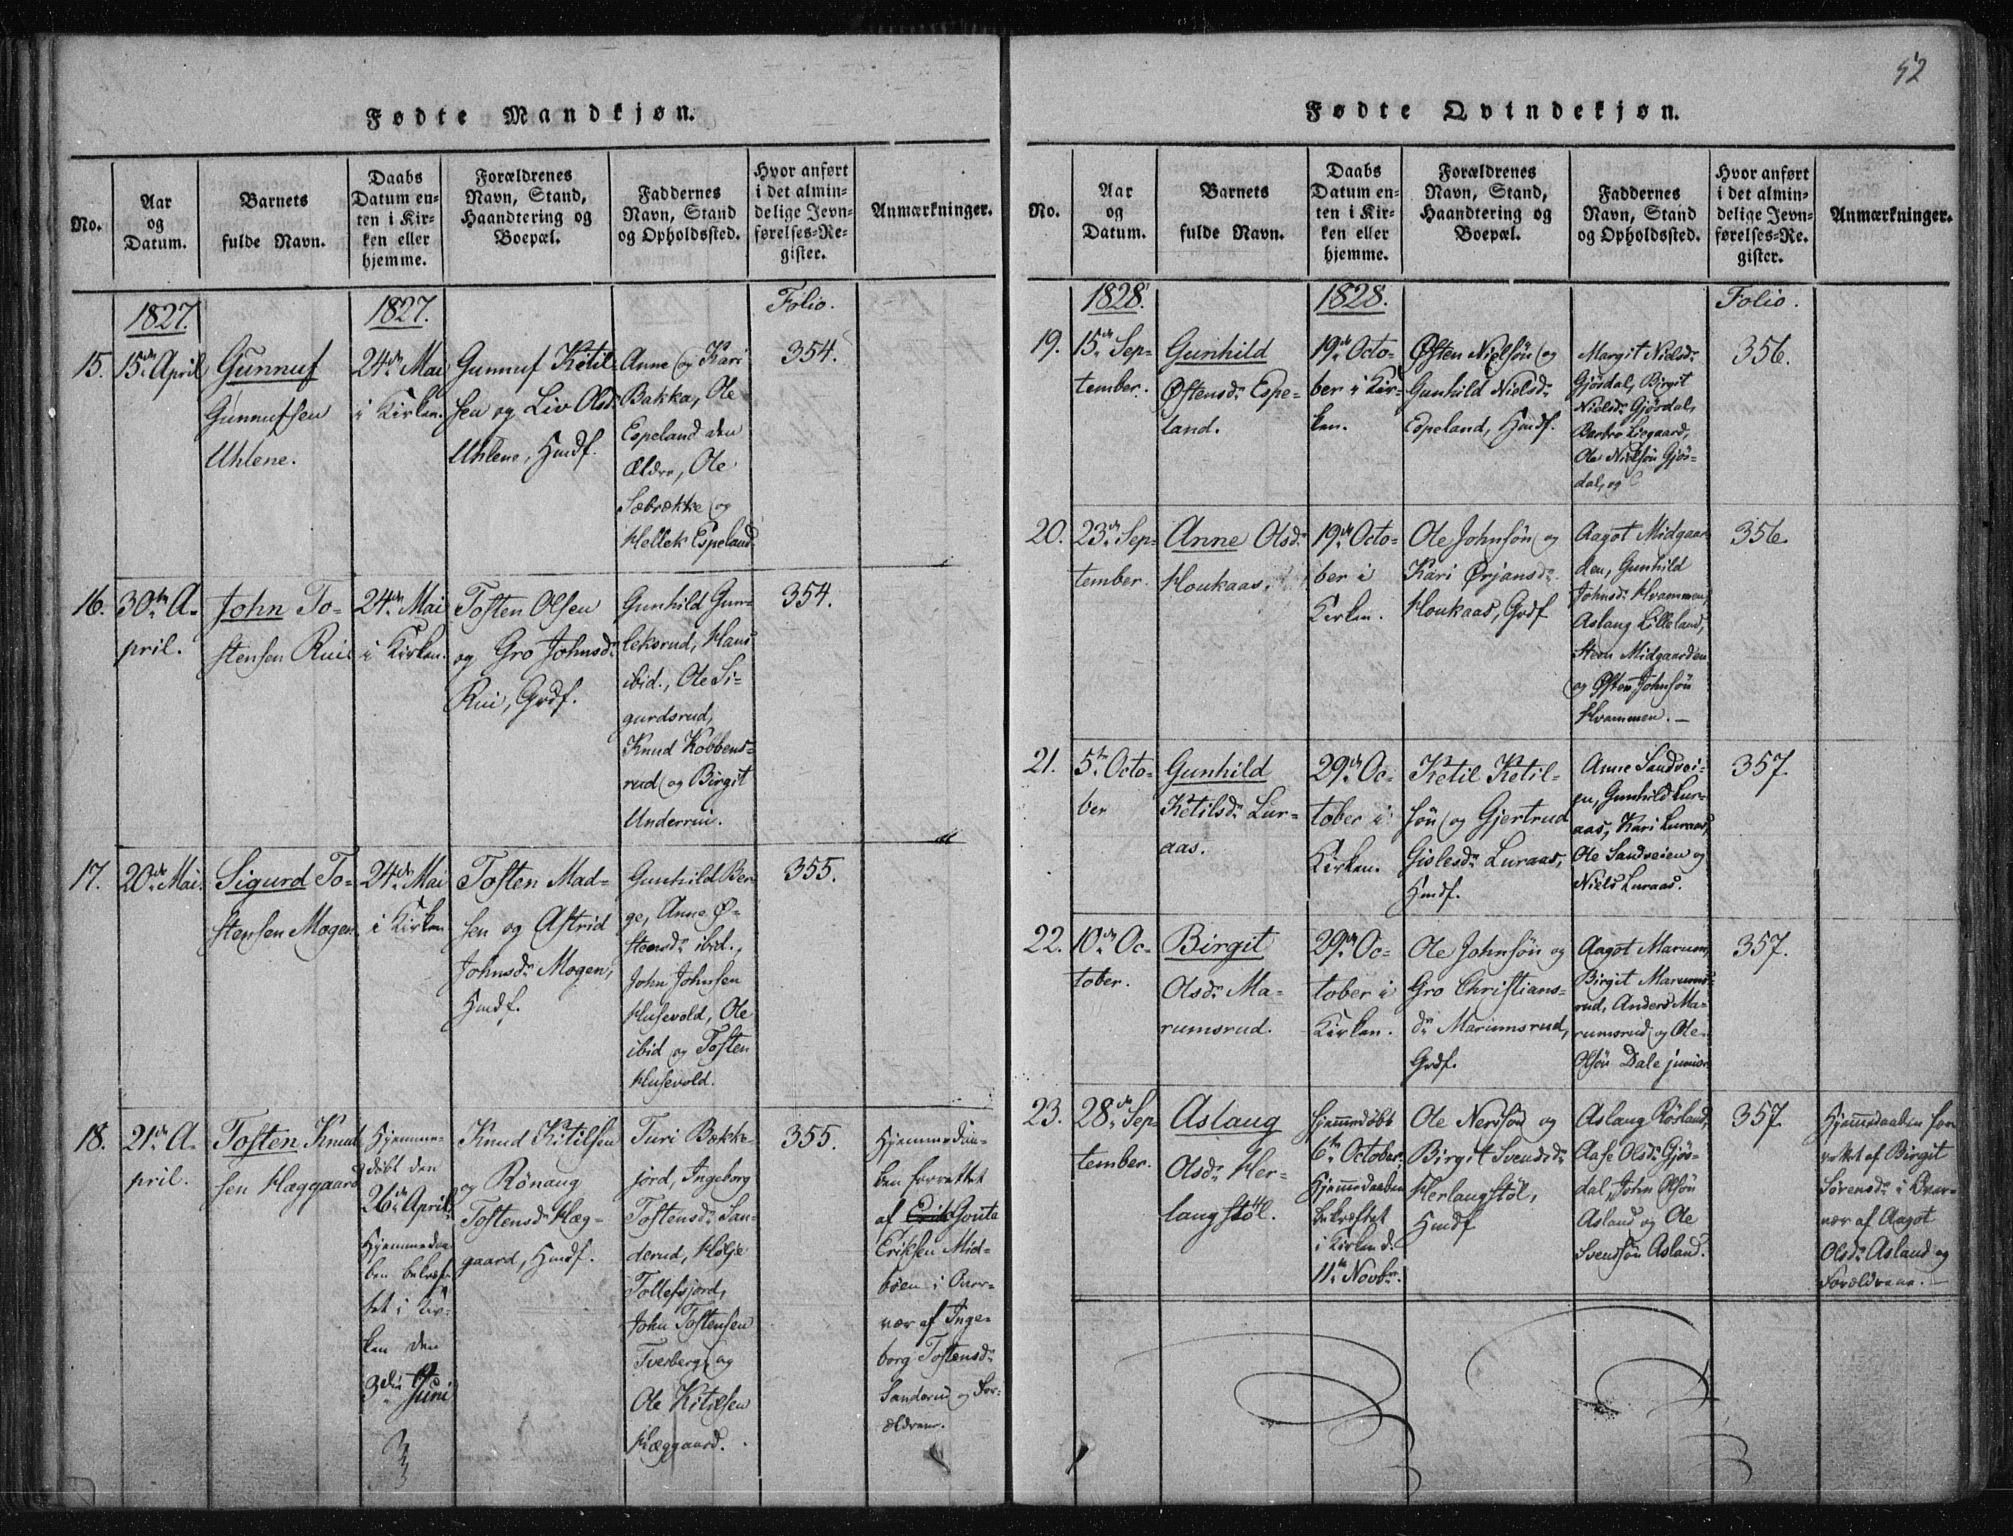 52
Fødte Mandkjøn.
No.
Aar
og
Datum.
Barnets
fulde Navn.
Daabs
Datum en-
ten i Kir-
ken eller
hjemme.
Forældrenes
Navn, Stand,
Haandtering og
Boepæl.
Faddernes
Navn, Stand
og Opholdssted.
Hvor anført
i det almin-
delige Jevn-
førelses-Re-
gister.
Anmærkninger.
1827.
1827.
Folio.
15.
15de April
Gunnuf
Gunnufsen
Uhlene.
24de Mai
i Kirken.
Gunnuf Kitil-
sen og Liv Olsd.
Uhlene, Hmdf.
Anne og Kari
Bakka, Ole
Espeland den
Ældre, Ole
Sæbrække og
Hellek Espeland
354.
16.
30te A-
pril.
John To-
stensen Rui
24de Mai
i Kirken.
Tosten Olsen
og Gro Johnsd.
Rui, Grdf.
Gunhild Gun-
leksrud, Hans
ibid., Ole Si-
gurdsrud,
Knud Kobbens-
rud og Birgit
Underrui.
354.
17.
20de Mai.
Sigurd To-
stensen Mogen
24de Mai
i Kirken
Tosten Mad-
sen og Astrid
Johnsd. Mogen,
Hmdf.
Gunhild Ber-
ge, Anne Ø-
stensd. ibid.,
John Johnsen
Husevold, Ole
ibid og Tosten
Husevold.
355.
18.
21de A-
pril.
Tosten Knud
sen Hæggaard
Hjemme-
døbt den
26de April.
Hjemmedaa-
ben bekræf-
tet i Kir-
ken den
3die Juni
Knud Kitilsen
og Rønaug
Tostensd. Hæg-
gaard, Hmdf.
Turi Bække-
jord, Ingeborg
Tostensd. San-
derud, Hølje
Tollefsjord,
John Tostensen
Tverberg og
Ole Kitilsen
Hæggaard.
355.
Hjemmedaa-
ben forrettet
af Erik Goute
Eriksen Mid-
bøen i Over-
vær af Inge-
borg Tostensd.
Sanderud og For-
ældrene.
Fødte Qvindekjøn.
No.
Aar
og
Datum.
Barnets
fulde Navn.
Daabs
Datum en-
ten i Kir-
ken eller
hjemme.
Forældrenes
Navn, Stand,
Haandtering og
Boepæl.
Faddernes
Navn, Stand
og Opholdssted.
Hvor anført
i det almin-
delige Jevn-
førelses-Re-
gister.
Anmærkninger.
1828.
1828.
Folio.
19.
15de Sep-
tember.
Gunhild
Østensd. Espe-
land.
19de Octo-
ber i Kir-
ken.
Østen Nielsøn og
Gunhild Nielsd.
Espeland, Hmdf.
Margit Nielsd.
Gjøsdal, Birgit
Nielsd. Gjøsdal,
Barbro Lisgaard,
Ole Nielsøn Gjøs-
dal, og
356.
20.
23de Sep-
tember.
Anne Olsd.
Houkaas.
19de Octo-
ber i
Kirken.
Ole Johnsøn og
Kari Ørjansd.
Houkaas, Grdf
Aagot Midgaar-
den, Gunhild
Johnsd. Hvammen,
Aslaug Lilleland,
Steen Midgaarden
og Østen Johnsøn
Hvammen. —
356.
21.
5te Octo-
ber
Gunhild
Ketilsd. Lur-
aas.
29de Oc-
tober i
Kirken.
Ketil Ketil-
søn og Gjertrud
Gislesd. Luraas,
Hmdf.
Anne Sandvei-
en, Gunhild Lur-
aas, Kari Luraas,
Ole Sandveien og
Niels Luraas.
357.
22.
10de Oc-
tober.
Birgit
Olsd. Ma-
rumsrud.
29de Oc-
tober i
Kirken.
Ole Johnsøn og
Gro Christians-
d. Marumsrud,
Grdf.
Aagot Marum,
Birgit Marums-
rud, Anders Ma-
rumsrud og Ole
Olsøn Dale junior
357.
23.
28de Sep-
tember.
Aslaug
Olsd. Her-
langstøl.
Hjemmedøbt
6te October.
Hjemmedaaben
bekræftet
i Kirken d.
11te Novbr.
Ole Nersøn og
Birgit Svendsd.
Herlangstøl,
Hmdf
Aslaug Røsland,
Aase Olsd. Gjøs-
dal, John Olsøn
Asland og Ole
Svendsøn Asland.
357.
Hjemmedaaben for-
rettet af Birgit
Sørensd. i Over-
vær af Aagot
Olsd. Asland og
Forældrene. —